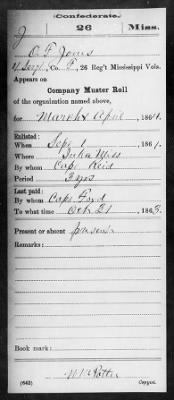 Confederate.
J 26 Miss.
O. F. Jones
4 Sergt, Co. F, 26 Reg't Mississippi Vols.
Appears on
Company Muster Roll
of the organization named above,
for March & April, 1864.
Enlisted:
When Sept 1, 1861.
Where Iuka Miss
By whom Capt Reid
Period 3 yrs
Last paid:
By whom Capt Ford
To what time Oct 31, 1863.
Present or absent present
Remarks:
Book mark:
(642) Copyist.